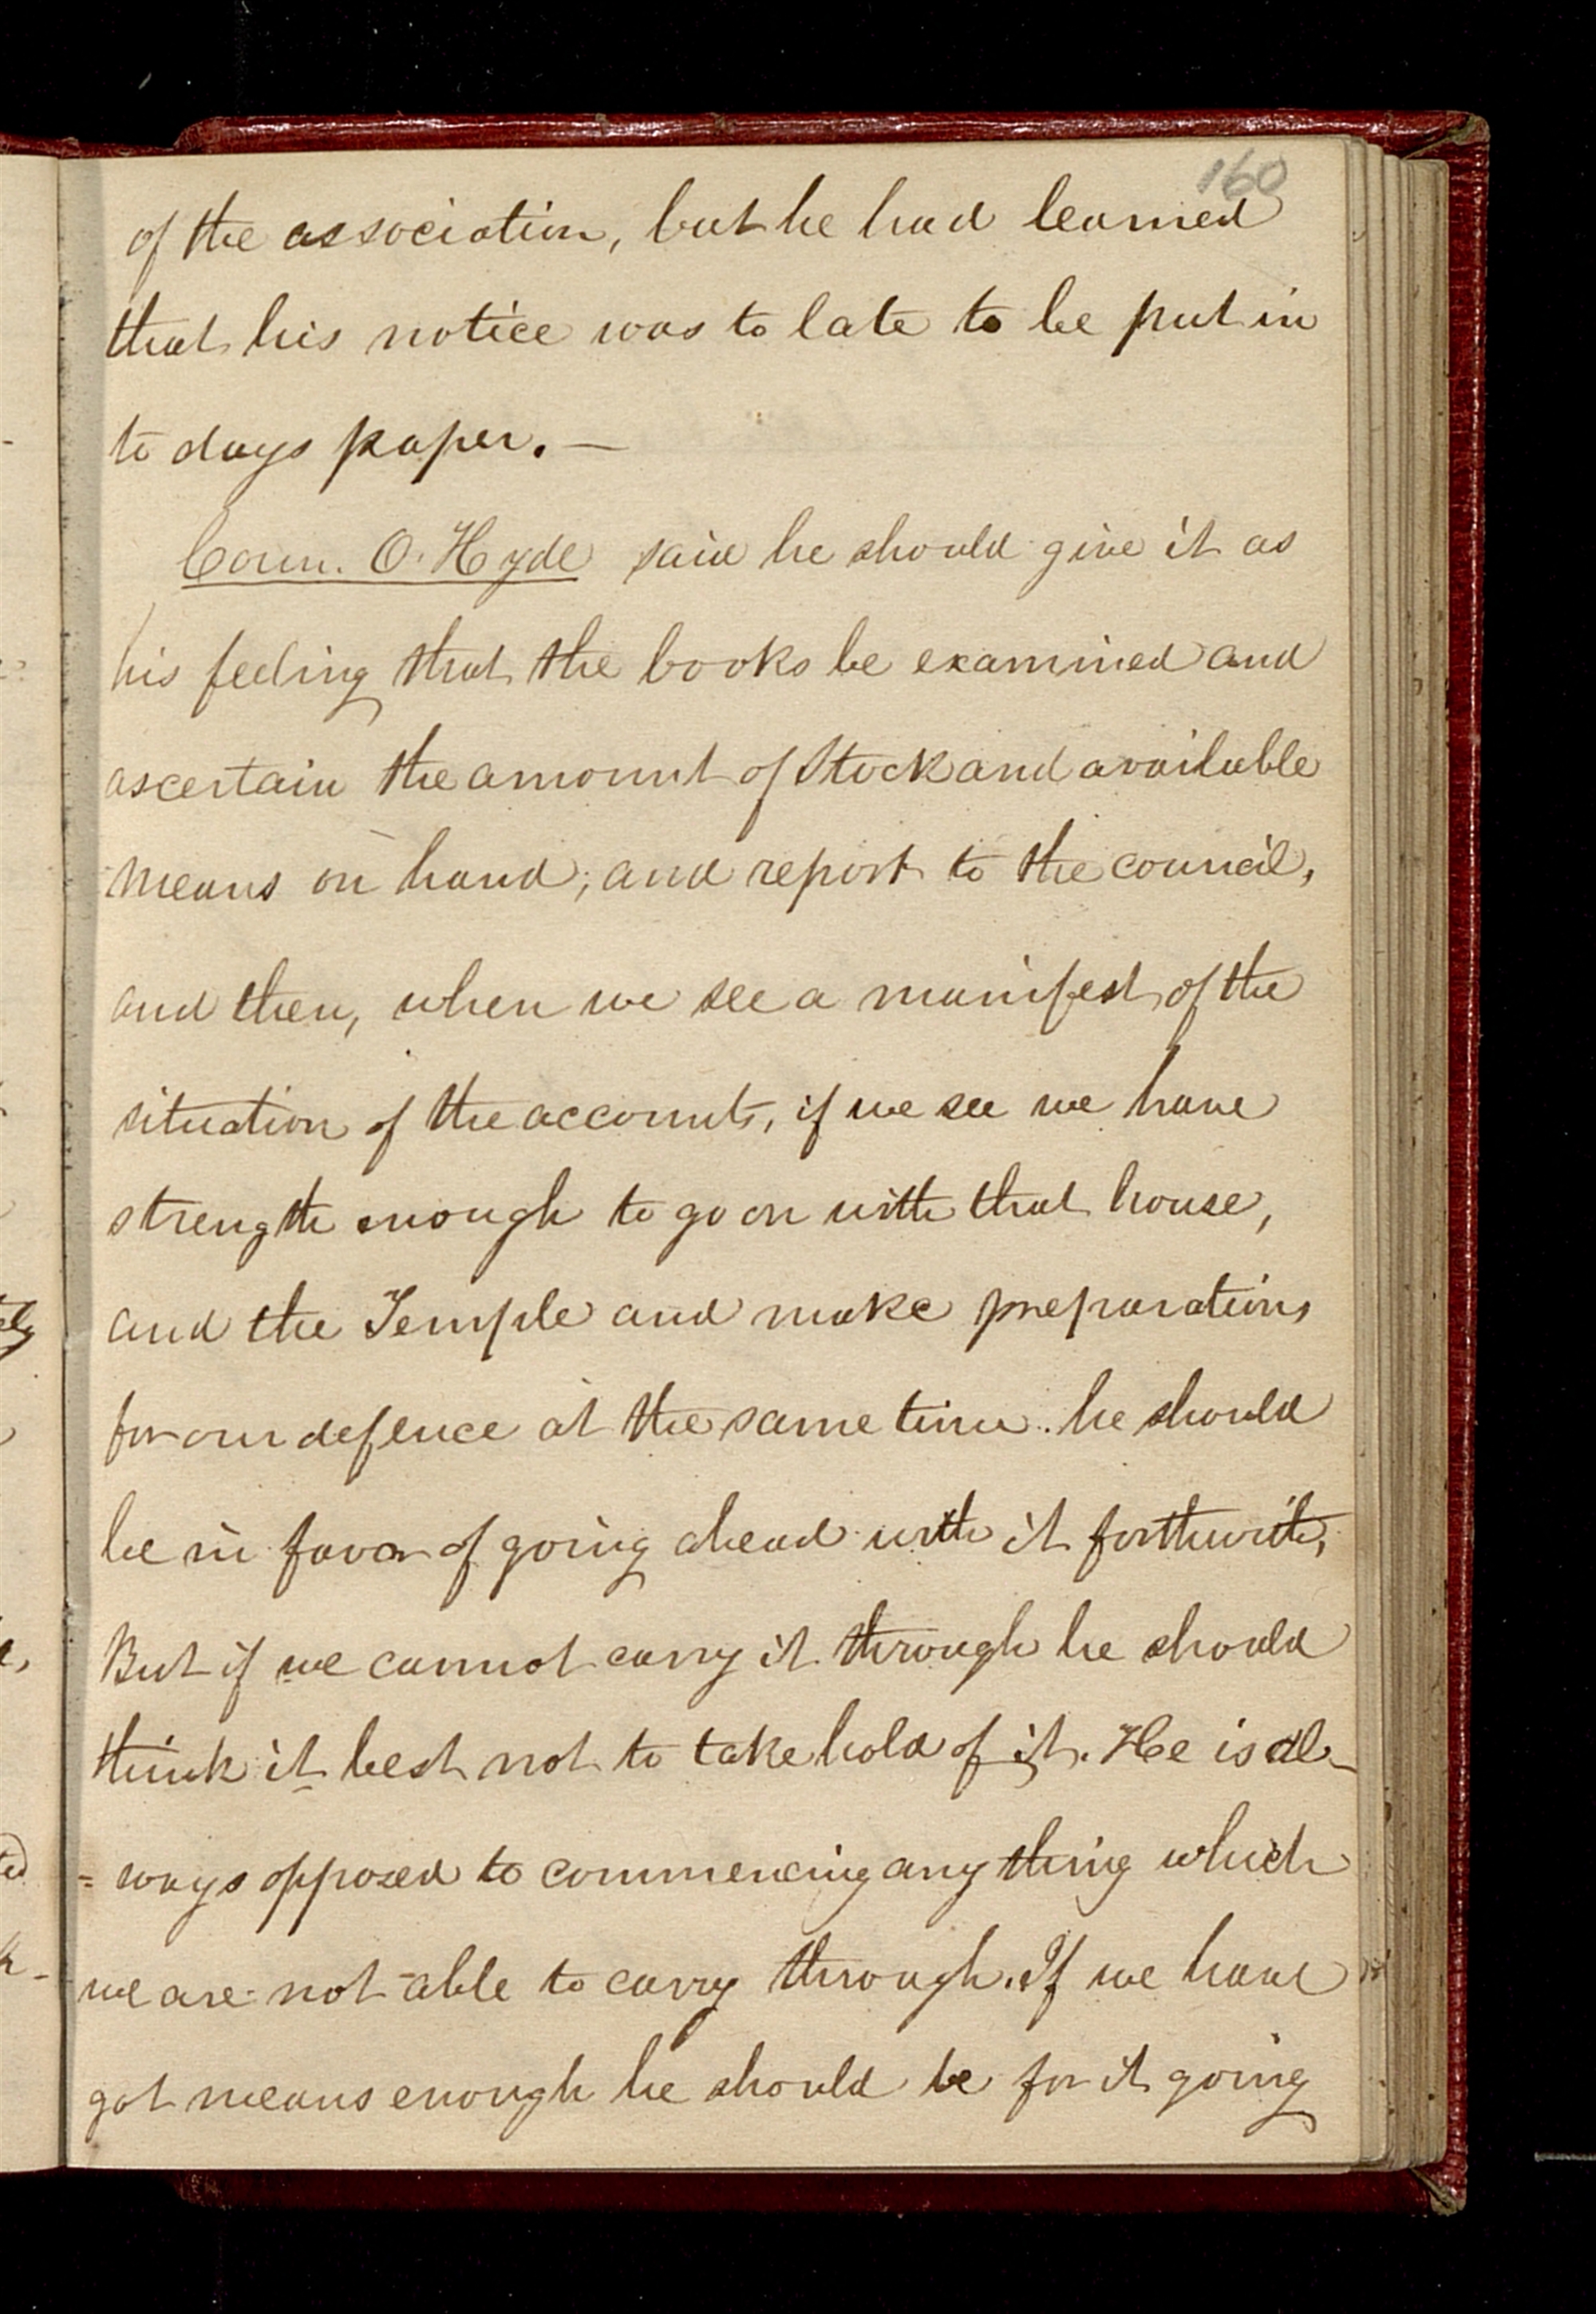 160
of the association, but he had learned
that his notice was to late to be put in
to days paper. —
Coun. O. Hyde said he should give it as
his feeling that the books be examined and
ascertain the amount of Stock and available
means on hand; and report to the council,
and then, when we see a manifest of the
situation of the accounts, if we see we have
strength enough to go on with that house,
and the Temple and make preparations
for our defence at the same time.. he should
be in favor of going ahead with it forthwith,
But if we cannot carry it through he should
think it best not to take hold of it. He is al-
=ways opposed to commencing any thing which
we are not able to carry through. If we have
got means enough he should be for it going